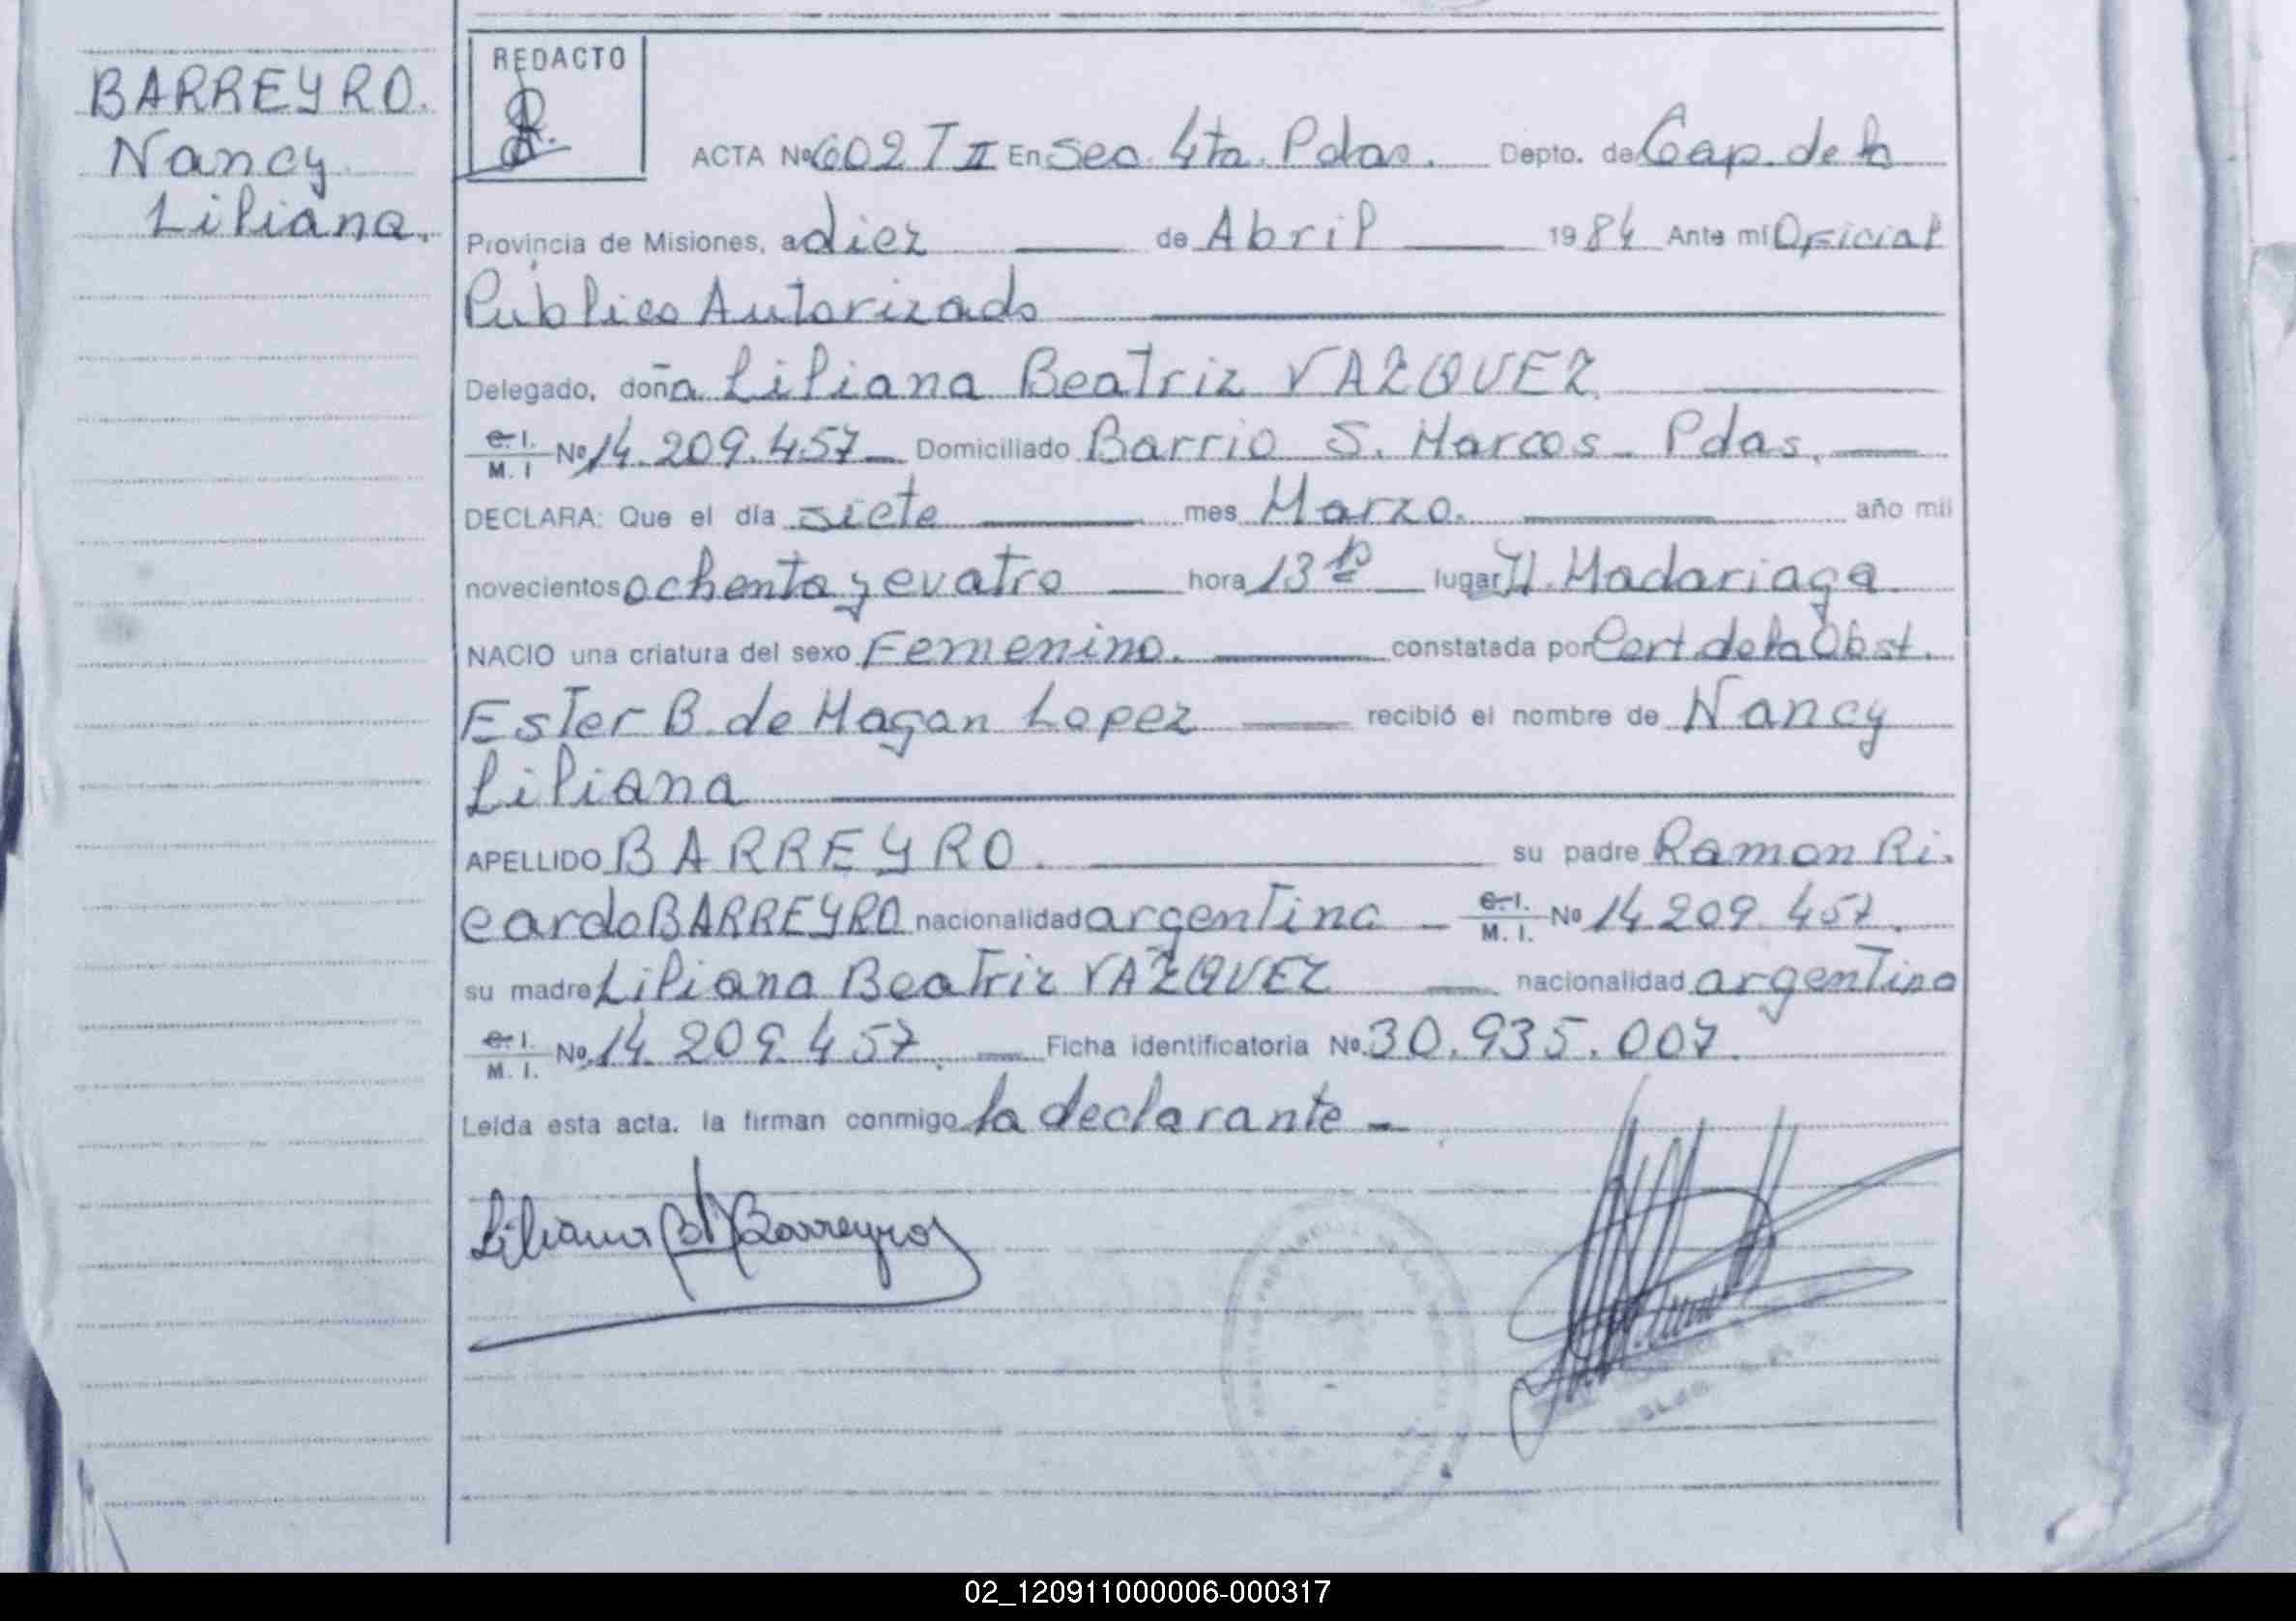 BARREYRO.
Nancy
Liliana.
REDACTO
ACTA Nº 602 T II En Sec. 4ta. Pdas. Depto. de Cap. de la
Provincia de Misiones, a diez de Abril 1984 Ante mi Oficial
Público Autorizado
Delegado, doña Liliana Beatriz VAZQUEZ
C. I. M. I Nº 14.209.457 Domiciliado Barrio S. Marcos - Pdas.
DECLARA: Que el día siete mes Marzo. año mil
novecientos ochenta y cuatro hora 13 lugar H. Madariaga
NACIO una criatura del sexo Femenino. constatada por Cert. de la Obst.
Ester B. de Magan Lopez recibió el nombre de Nancy
Liliana
APELLIDO BARREYRO. su padre Ramon Ri.
cardo BARREYRO nacionalidad argentina C. I. M. I. Nº 14.209.457.
su madre Liliana Beatriz VAZQUEZ nacionalidad argentina
C. I. M. I. Nº 14.209.457. Ficha identificatoria Nº 30.935.007.
Leída esta acta. la firman conmigo la declarante -
Liliana Barreyro
02_120911000006-000317